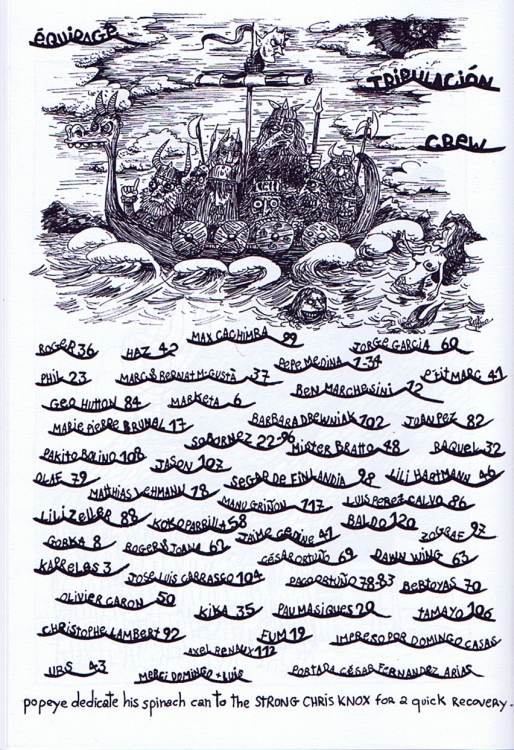 équipage
TRIPULACIÓN
CREW
MAX CACHIMBA 99
ROGER 36 HAZ 42 PEPE MEDINA 1-34 JORGE GARCIA 60
PHIL 23 MARC & BERNAT M. GUSTÀ 37 BEN MARCHESINI 12 P'tit MARC 41
GEO HUTTON 84 MARKETA 6
MARIE PIERRE BRUNEL 17 BARBARA DREWNIAK 102 JUAN PEZ 82
SOBORNEZ 22-96 MISTER BRATTO 48 RAQUEL 32
PAKITO BOLINO 108 JASON 107
OLAF 79 SEGAR DE FINLANDIA 98 LILI HARTMANN 46
MATTHIAS LEHMANN 78 MANU GRIÑON 117 LUIS PEREZ CALVO 86
LILI ZELLER 88 KOKO PARRILLA 58 BALDO 120
GORKA 8 ROGER & JOANA 62 JAIME 41 ZOGRAF 97
CÉSAR ORTUÑO 69 DAWN WING 63
KARRELAS 3 JOSE LUIS CARRASCO 104 PACO ORTUÑO 78-83 BEBTOYAS 70
OLIVIER CARON 50 KIKA 35 PAU MASIQUES 20 TAMAYO 106
CHRISTOPHE LAMBERT 92 FUM 19 IMPRESO POR DOMINGO CASAS
AXEL RENAUX 112
UBS 43 MERCI DOMINGO + LUIS PORTADA CÉSAR FERNANDEZ ARIAS
popeye dedicate his spinach can to the STRONG CHRIS KNOX for a quick recovery.